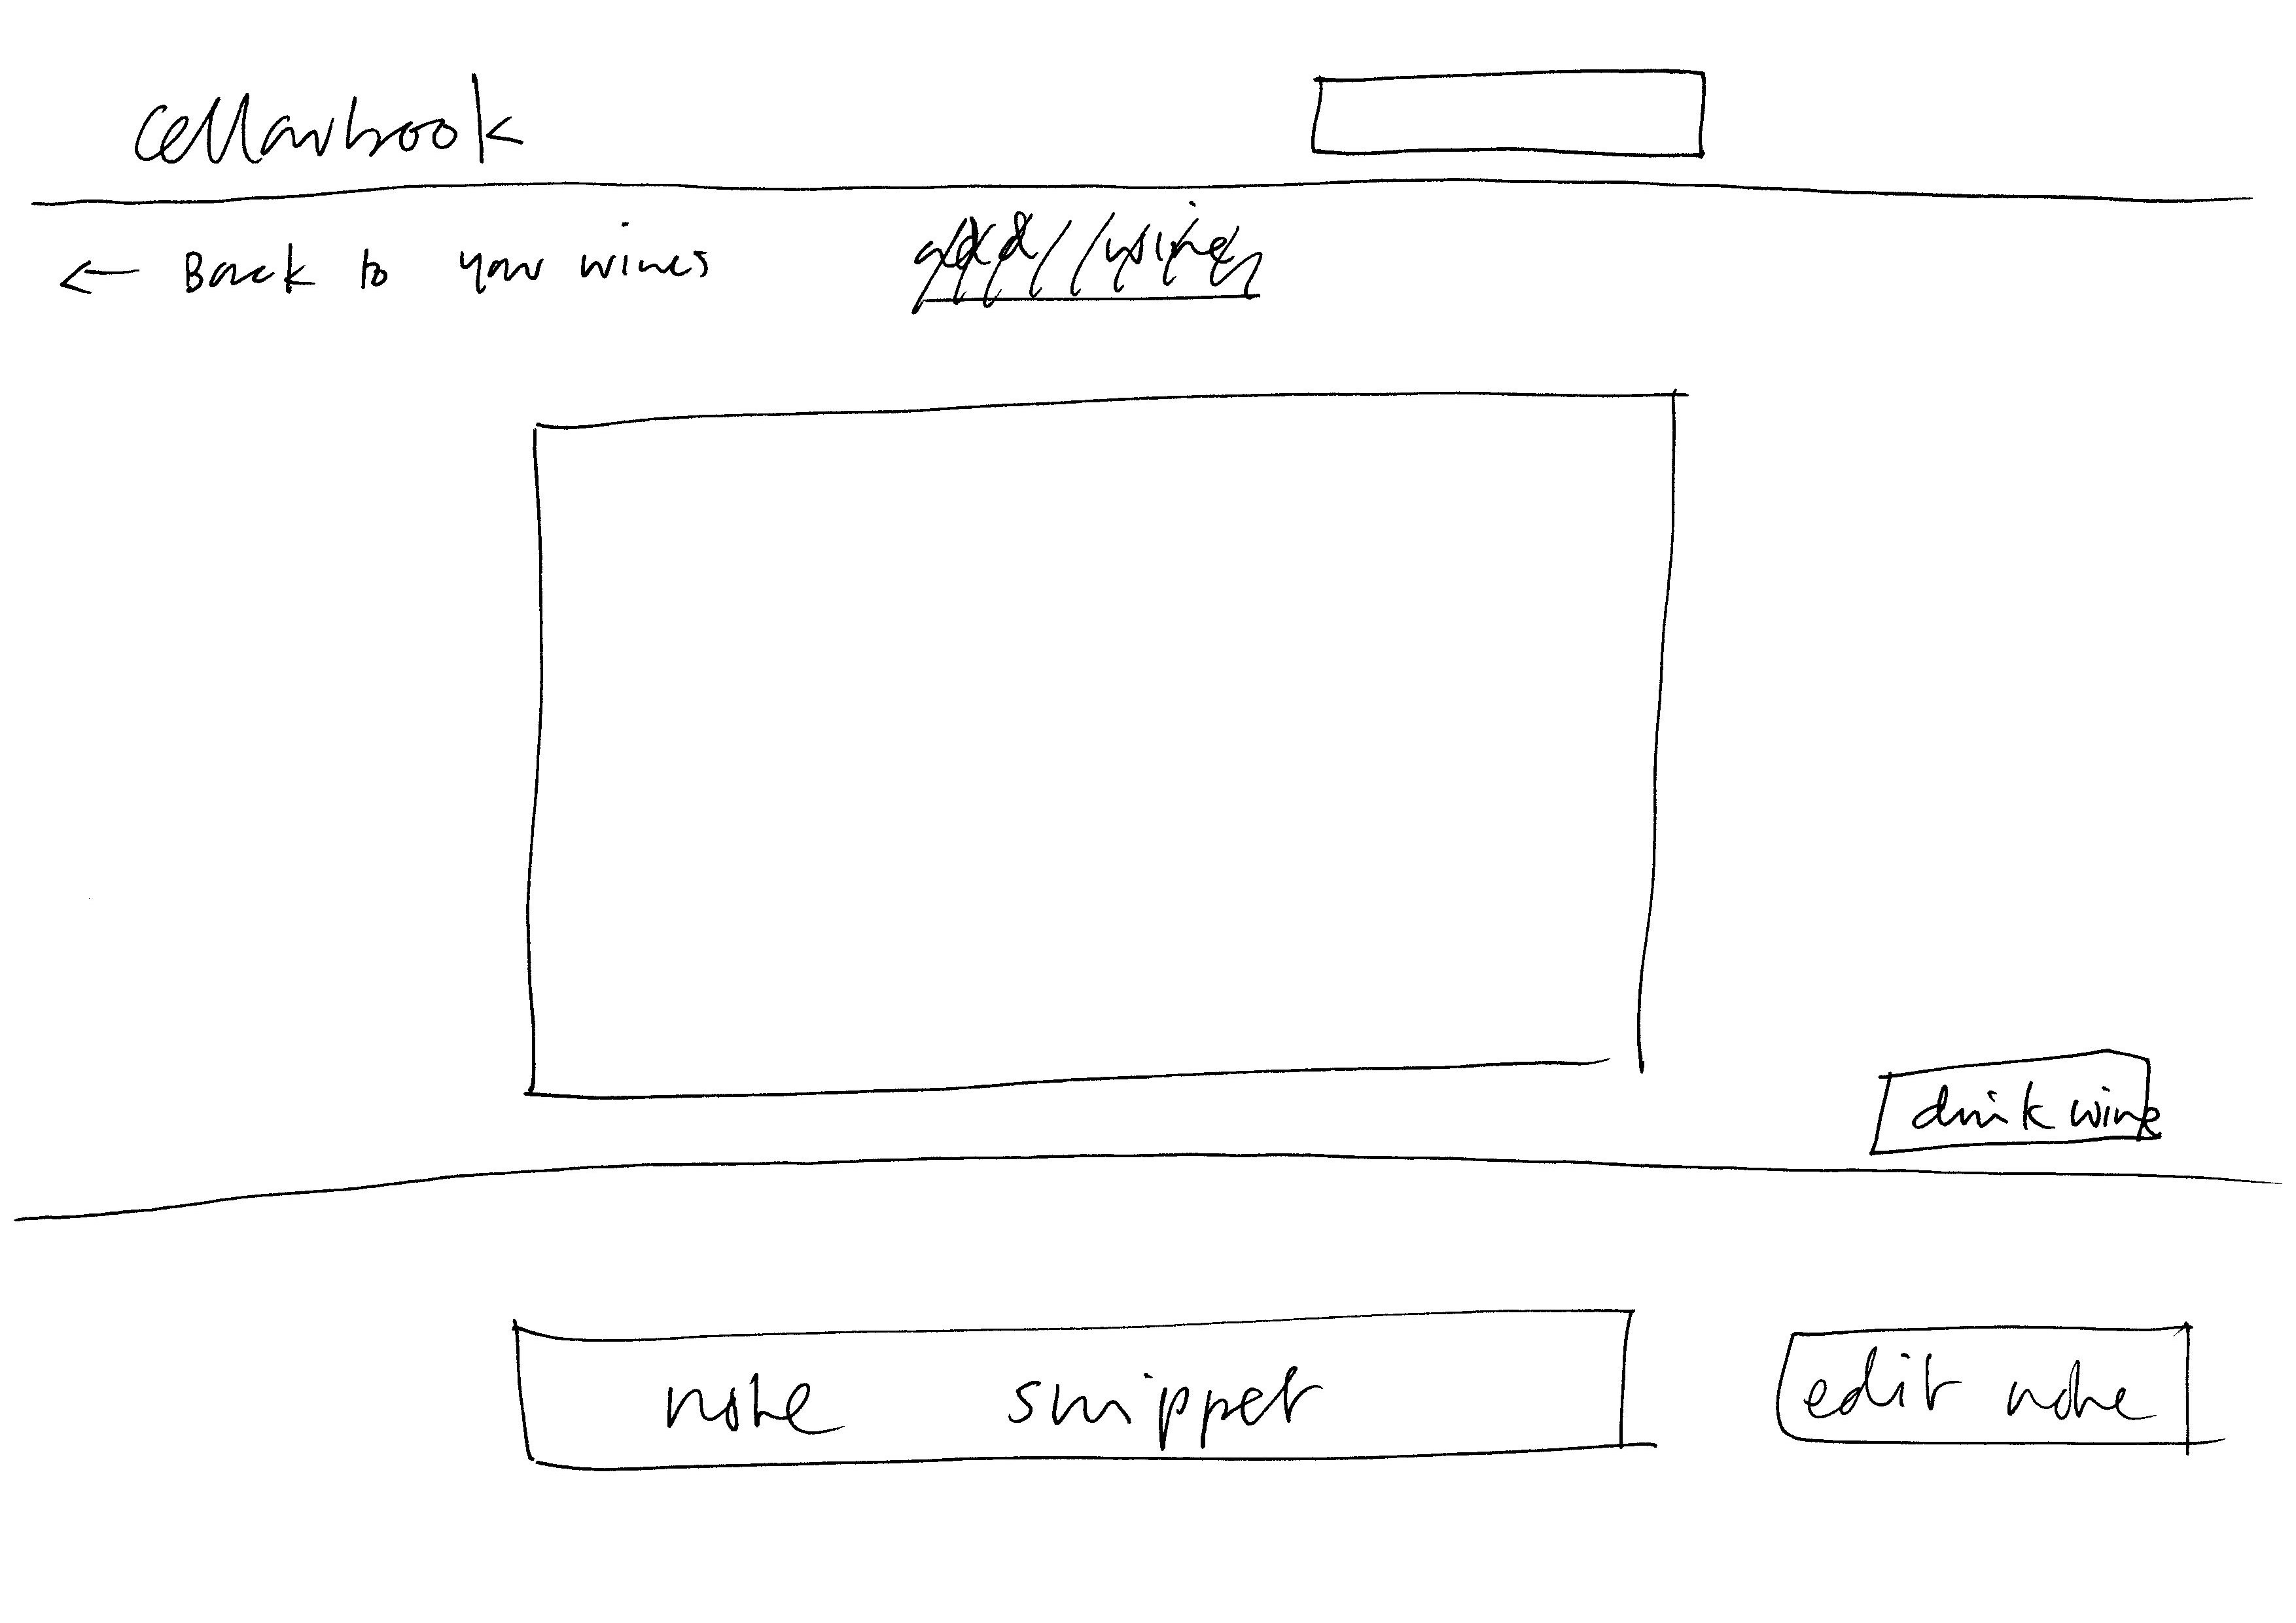 cellarbook
← Back to your wines
drink wine
note snippet
edit note